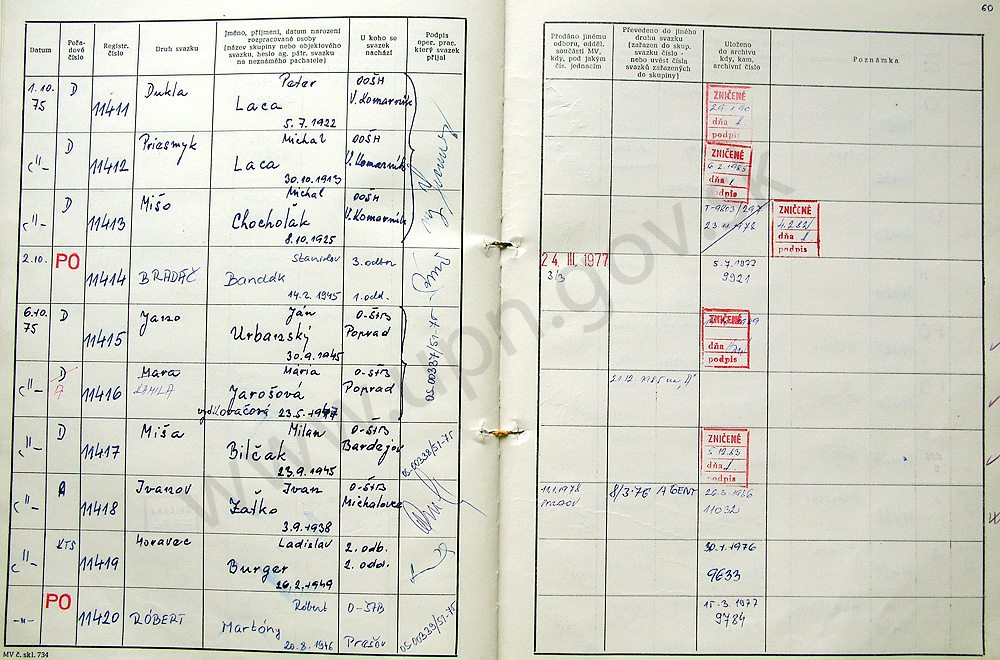 60
Datum
Pořadové číslo
Registr. číslo
Druh svazku
Jméno, příjmení, datum narození rozpracované osoby (název skupiny nebo objektového svazku, heslo ag. pátr. svazku na neznámého pachatele)
U koho se svazek nachází
Podpis oper. prac. který svazek přijal
Předáno jinému odboru, odděl. součásti MV, kdy, pod jakým čís. jednacím
Převedeno do jiného druhu svazku (zařazen do skup. svazku číslo - nebo uvést čísla svazků zařazených do skupiny)
Uloženo do archivu kdy, kam, archivní číslo
Poznámka
1.10. 75 D 11411 Dukla Peter Laca 5.7.1922 OOŠH V. Komarník
ZNIČENÉ
dňa
podpis
—"— D 11412 Priesmyk Michal Laca 30.10.1913 OOŠH V. Komarník
ZNIČENÉ
6.2.1985
dňa
podpis
—"— D 11413 Mišo Michal Chocholák 8.10.1925 OOŠH V. Komarník
23.11.1976
ZNIČENÉ
4.2.82
dňa
podpis
2.10. PO 11414 BRADÁČ Stanislav Bandák 14.2.1945 3. odbor 1. odd.
24. III. 1977
3/3
5.7.1977
9921
6.10. 75 D 11415 Jano Ján Urbanský 30.9.1945 O-ŠTB Poprad OS-00337/51-75
ZNIČENÉ
dňa
podpis
—"— D A 11416 Mara KAMILA Mária Jarošová vydikovačová 23.5.1947 O-ŠTB Poprad
21.12.1985 na "A"
—"— D 11417 Miša Milan Bilčak 23.9.1945 O-ŠTB Bardejov OS-00338/51-75
ZNIČENÉ
5.12.83
dňa
podpis
—"— A 11418 Ivanov Ivan Zaťko 3.9.1938 O-ŠTB Michalovce
11.1.1978
8/3-76 AGENT
11032
—"— KTS 11419 Moravec Ladislav Burger 26.2.1949 2. odb. 2. odd.
30.1.1976
9633
—"— PO 11420 RÓBERT Róbert Martóny 20.8.1946 O-ŠTB Prešov OS-00339/51-75
15.3.1977
9784
MV č. skl. 734
www.upn.gov.sk